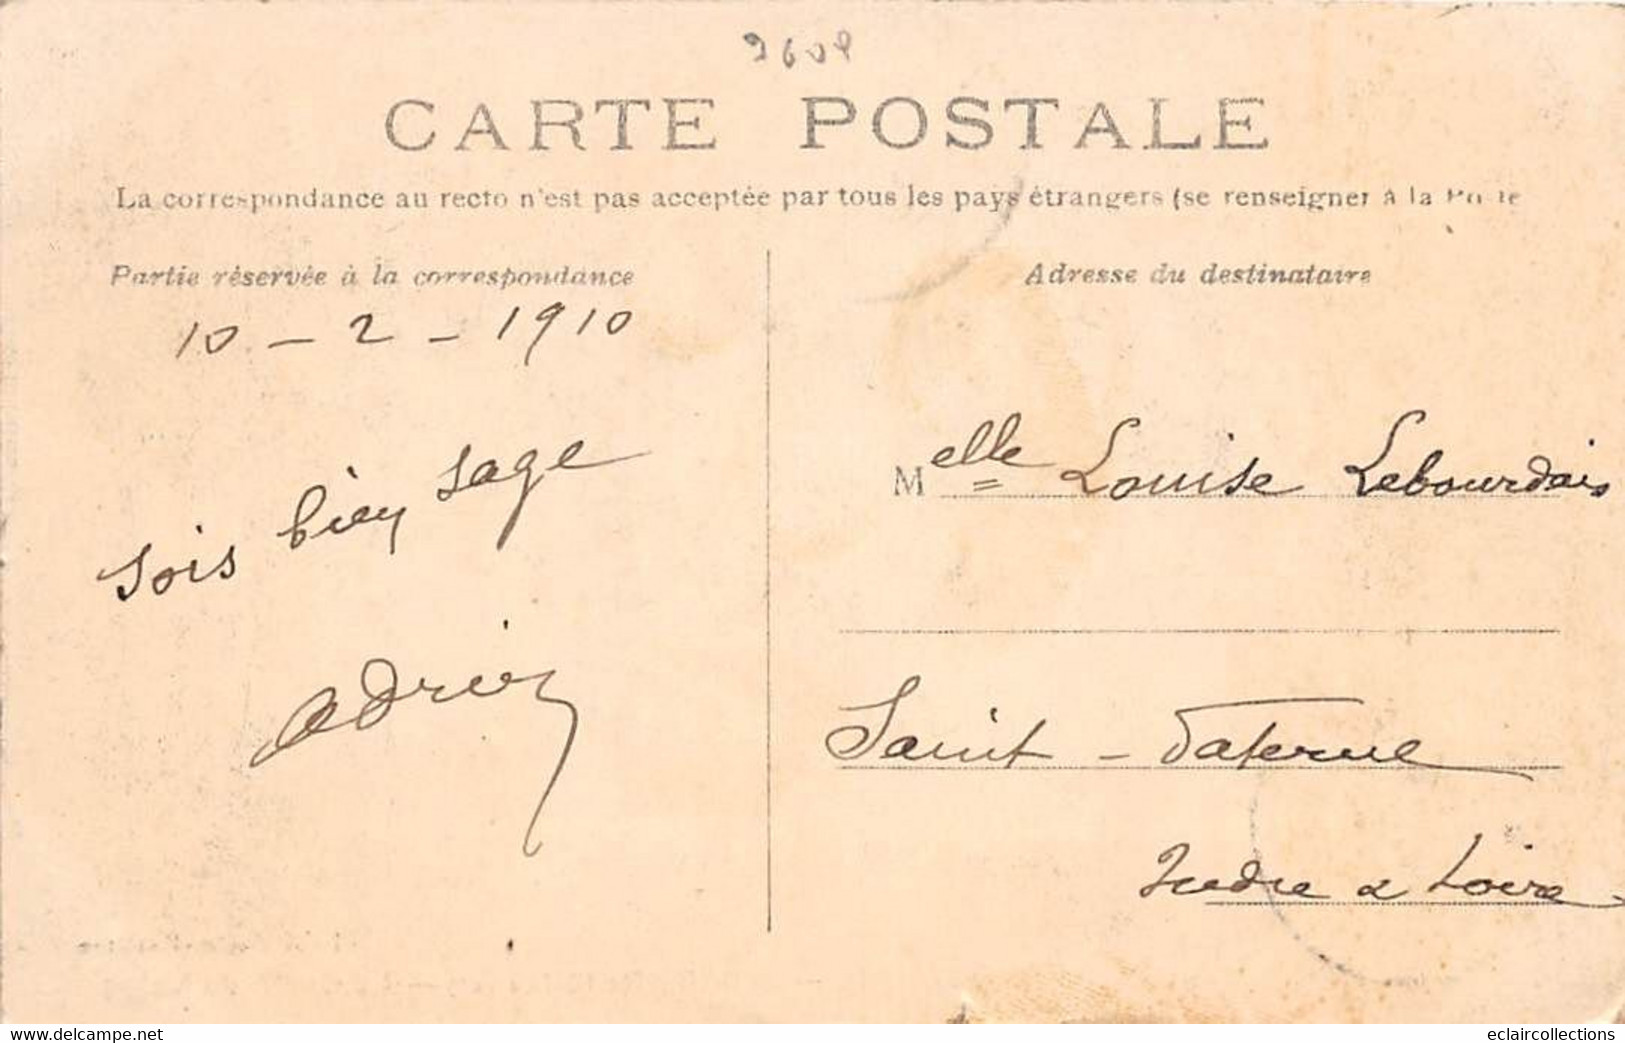 CARTE POSTALE
La correspondance au recto n'est pas acceptée par tous les pays étrangers (se renseigner à la Poste
Partie réservée à la correspondance
10 - 2 - 1910
Sois bien sage
Adrien
Adresse du destinataire
Melle Louise Lebourdais
Saint - Paterne
Indre & Loire
delcampe.net
eclaircollections